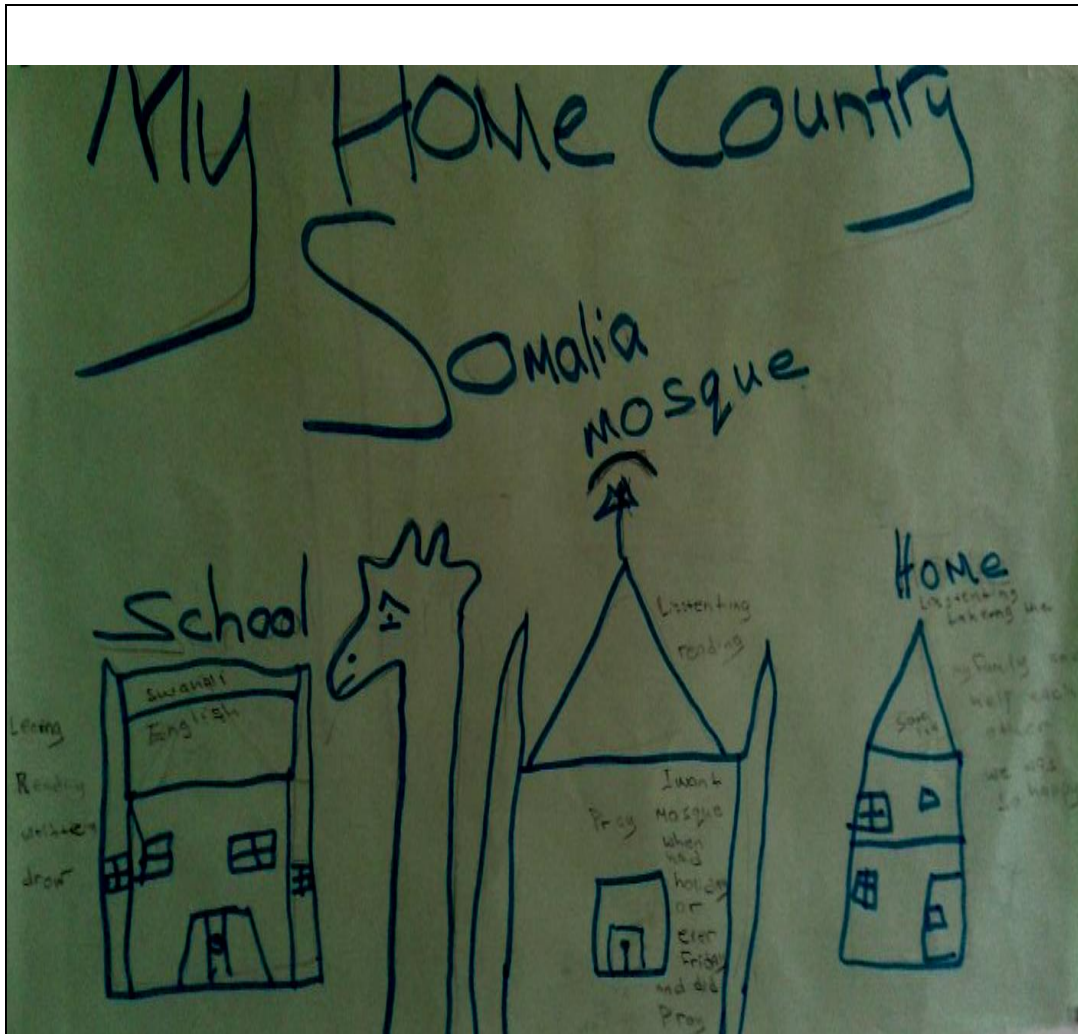 My Home Country
Somalia
Mosque
School
swahili
English
Reading
written
drow
Listenting
reading
I want
Pray mosque
when
had
holiday
or
ever
Friday
and did
Pray
Home
Lisstenting
the
my family and
help each
other
we was
so happy